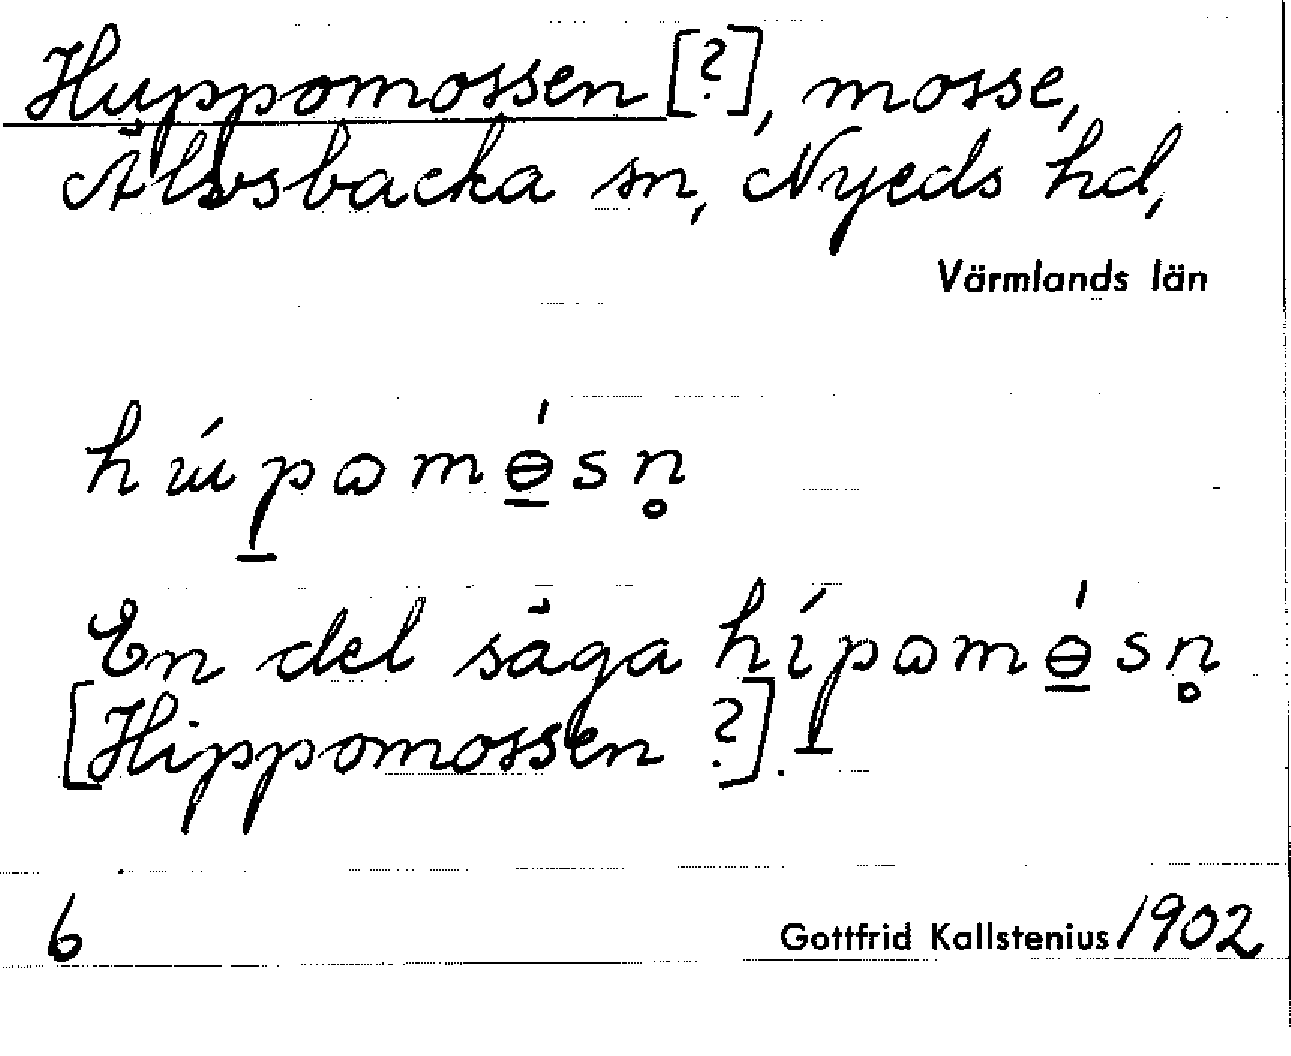 Huppomossen [?], mosse,
Älvsbacka sn, Nyeds hd,
Värmlands län
hɯ́p̱ɷmɵ̱́sn̥
En del säga híp̱ɷmɵ̱́sn̥
[Hippomossen ?].
6 Gottfrid Kallstenius 1902